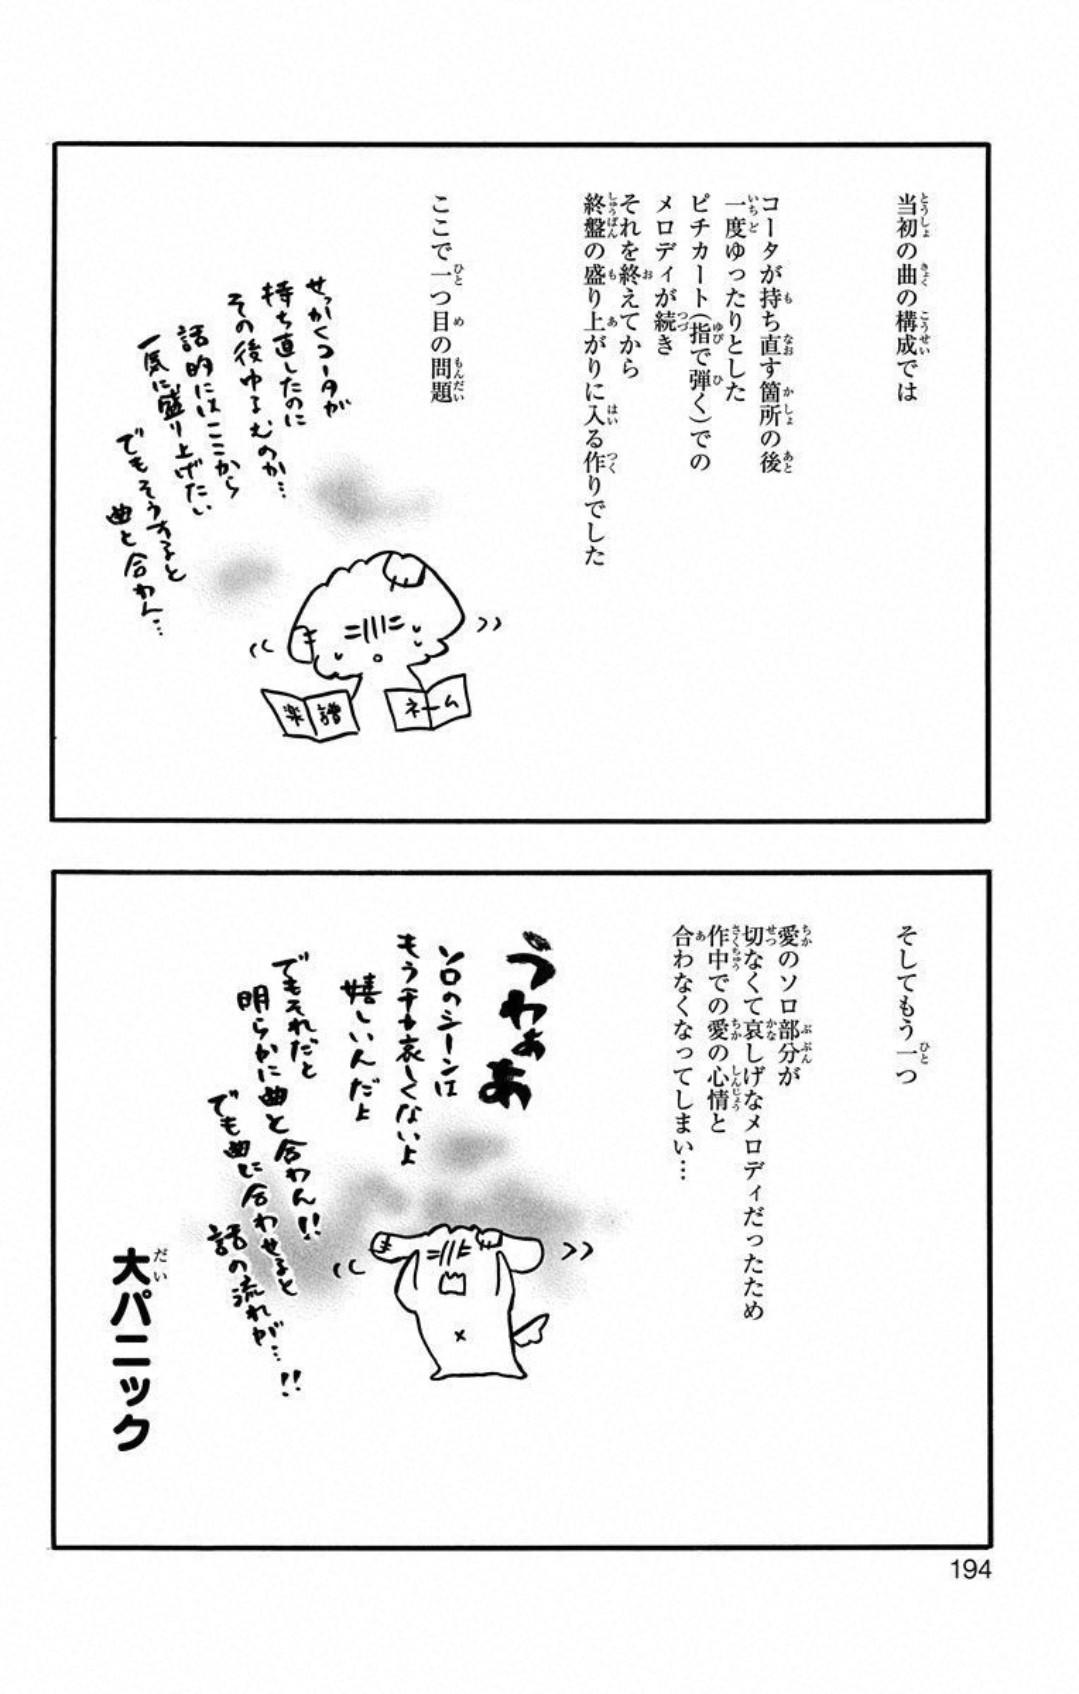 当初の曲の構成では
コータが持ち直す箇所の後
一度ゆったりとした
ピチカート(指で弾く)での
メロディが続き
それを終えてから
終盤の盛り上がりに入る作りでした
ここで一つ目の問題
せっかくコータが
持ち直したのに
その後ゆるむのか…
話的にはここから
一気に盛り上げたい
でもそうすると
曲と合わん…
楽譜
ネーム
そしてもう一つ
愛のソロ部分が
切なくて哀しげなメロディだったため
作中での愛の心情と
合わなくなってしまい…
うわぁあ
ソロのシーンは
もうチカ哀しくないよ
嬉しいんだよ
でもそれだと
明らかに曲と合わん!!
でも曲に合わせると
話の流れが…!!
大パニック
194